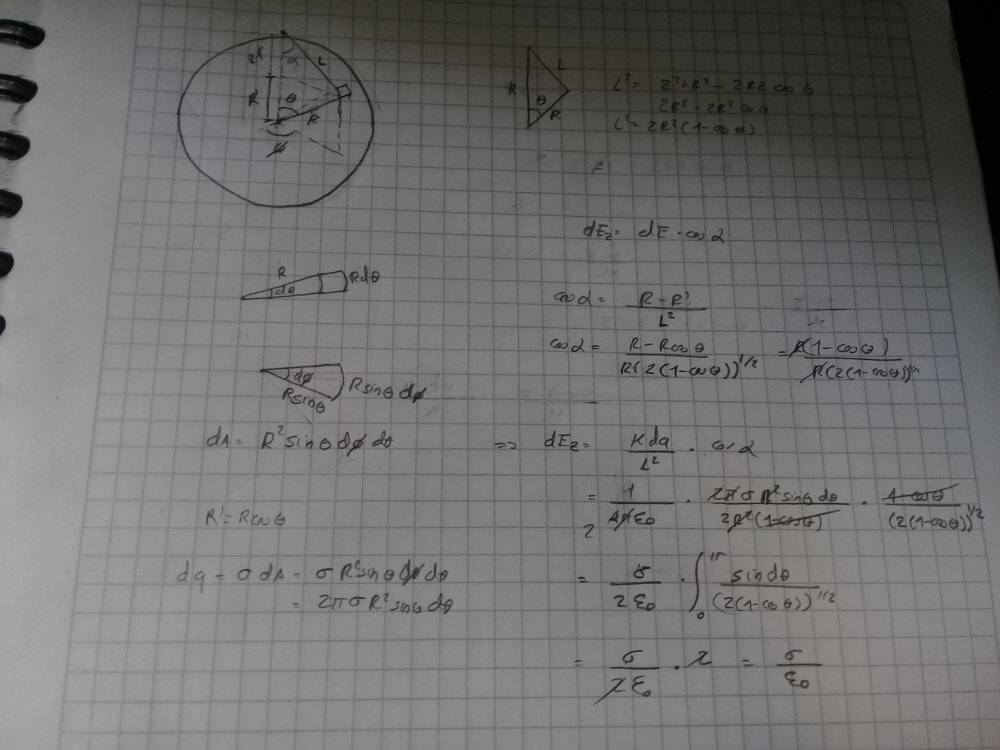 z'
α
L
R'
θ
R
ϕ
R
L
θ
R
L² = Z² + R² - 2RZ cos θ
2R² - 2R² cos θ
L² = 2R² (1 - cos θ)
=
dEz = dE · cos α
R
dθ
R dθ
cos α = (R - R') / L²
cos α = (R - R cos θ) / (R (2(1 - cos θ))^1/2) = R(1 - cos θ) / (R (2(1 - cos θ))^1/2)
dϕ
R sin θ
R sin θ dϕ
dA = R² sin θ dϕ dθ
=> dEz = (K dq / L²) · cos α
= 1 / (4πε₀) · (2πσ R² sin θ dθ) / (2R² (1 - cos θ)) · (1 - cos θ) / (2(1 - cos θ))^1/2
2
R' = R cos θ
dq = σ dA = σ R² sin θ dϕ dθ
= 2πσR² sin θ dθ
= σ / (2ε₀) · ∫₀^π sin dθ / (2(1 - cos θ))^1/2
= σ / (2ε₀) · 2 = σ / ε₀